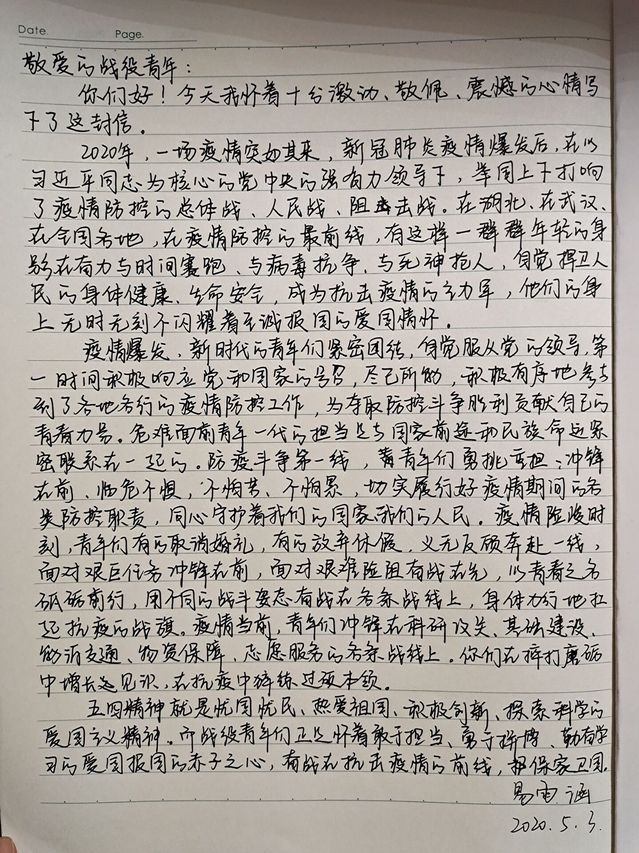 Date. Page.
敬爱的战役青年：
你们好！今天我怀着十分激动、敬佩、震撼的心情写
下了这封信。
2020年，一场疫情突如其来，新冠肺炎疫情爆发后，在以
习近平同志为核心的党中央的强有力领导下，举国上下打响
了疫情防控的总体战、人民战、阻击战。在湖北、在武汉、
在全国各地，在疫情防控的最前线，有这样一群群年轻的身
影在奋力与时间赛跑、与病毒抗争、与死神抢人，自觉捍卫人
民的身体健康、生命安全，成为抗击疫情的主力军，他们的身
上无时无刻不闪耀着至诚报国的爱国情怀。
疫情爆发，新时代的青年们紧密团结，自觉服从党的领导，第
一时间积极响应党和国家的号召，尽己所能，积极有序地参与
到了各地各行的疫情防控工作，为夺取防控斗争胜利贡献自己的
青春力量。危难面前青年一代的担当是与国家前途和民族命运紧
密联系在一起的。防疫斗争第一线，青年们勇挑重担、冲锋
在前、临危不惧，不怕苦、不怕累，切实履行好疫情期间的各
类防控职责，同心守护着我们的国家我们的人民。疫情险峻时
刻，青年们有的取消婚礼，有的放弃休假，义无反顾奔赴一线，
面对艰巨任务冲锋在前，面对艰难险阻奋战在先，以青春之名
砥砺前行，用不同的战斗姿态奋战在各条战线上，身体力行地扛
起抗疫的战旗。疫情当前，青年们冲锋在科研攻关、基础建设、
物资保障、志愿服务的各条战线上。你们在摔打磨砺
中增长见识，在抗疫中锤练过硬本领。
五四精神就是忧国忧民、热爱祖国、积极创新、探索科学的
爱国主义精神。而战役青年们正是怀着敢于担当、勇于拼搏、勤奋学
习的爱国报国的赤子之心，奋战在抗击疫情的前线，保家卫国。
易雨涵
2020.5.3.